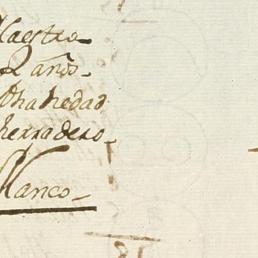 Maestro
2 años
dha hedad
herradero
Blanco